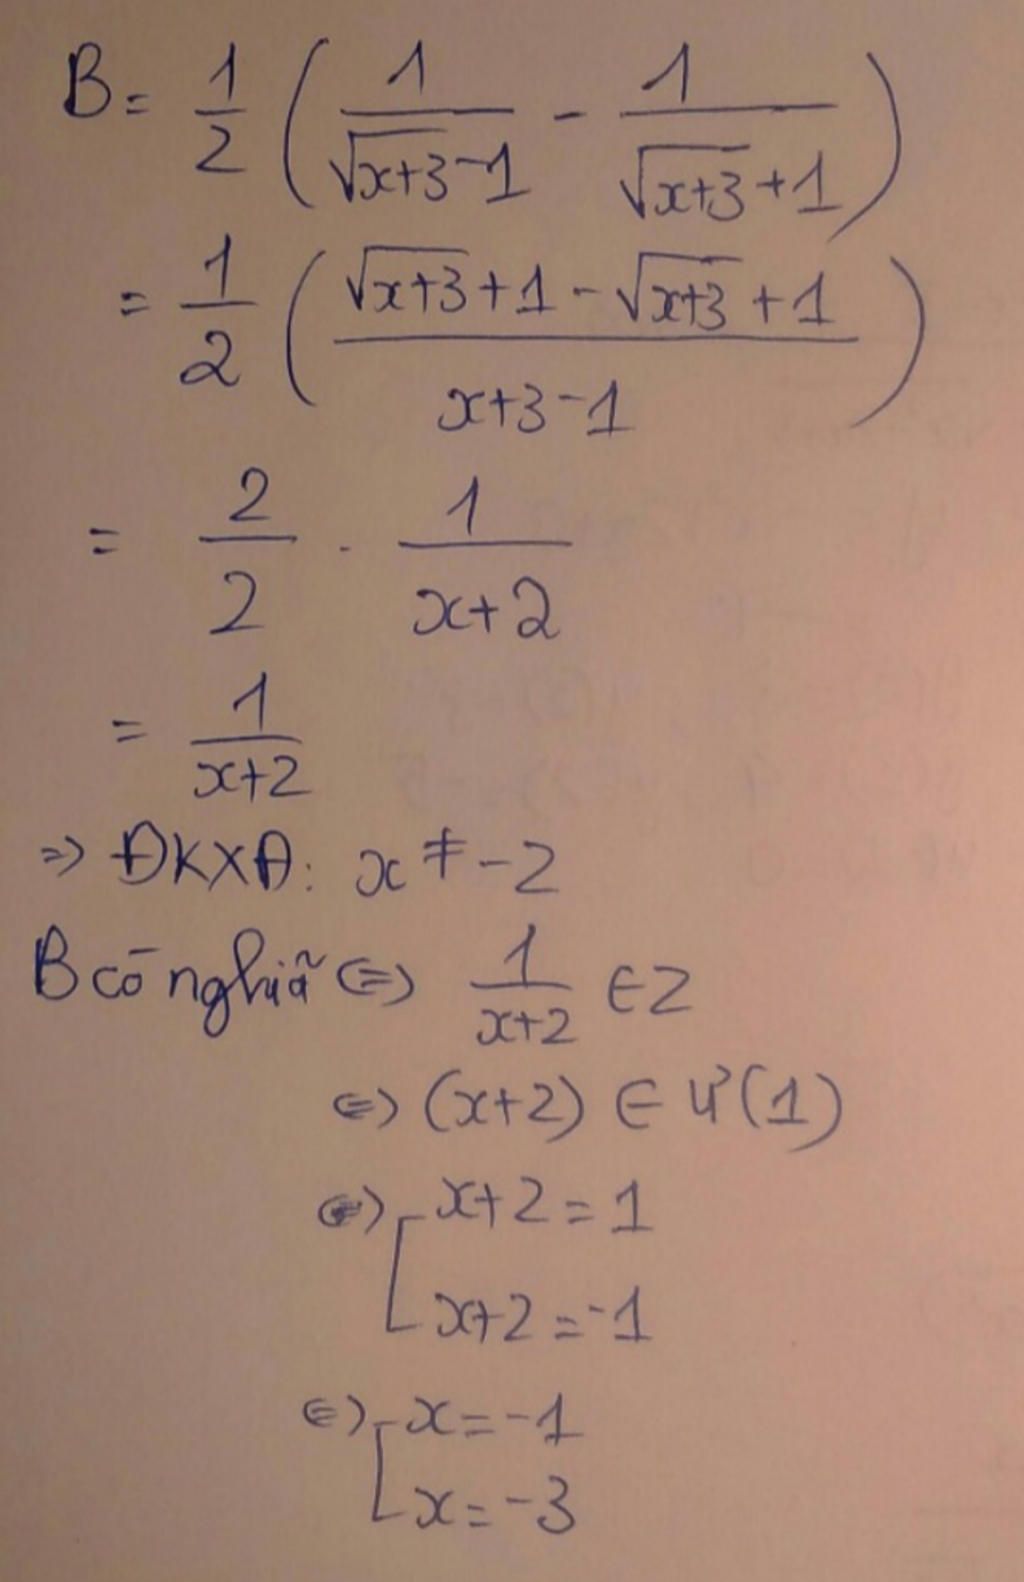 B = \frac{1}{2} \left( \frac{1}{\sqrt{x+3}-1} - \frac{1}{\sqrt{x+3}+1} \right)
= \frac{1}{2} \left( \frac{\sqrt{x+3}+1-\sqrt{x+3}+1}{x+3-1} \right)
= \frac{2}{2} \cdot \frac{1}{x+2}
= \frac{1}{x+2}
=> ĐKXĐ: x ≠ -2
B có nghĩa <=> \frac{1}{x+2} ∈ Z
<=> (x+2) ∈ Ư(1)
<=> [ x+2 = 1
x+2 = -1
<=> [ x = -1
x = -3